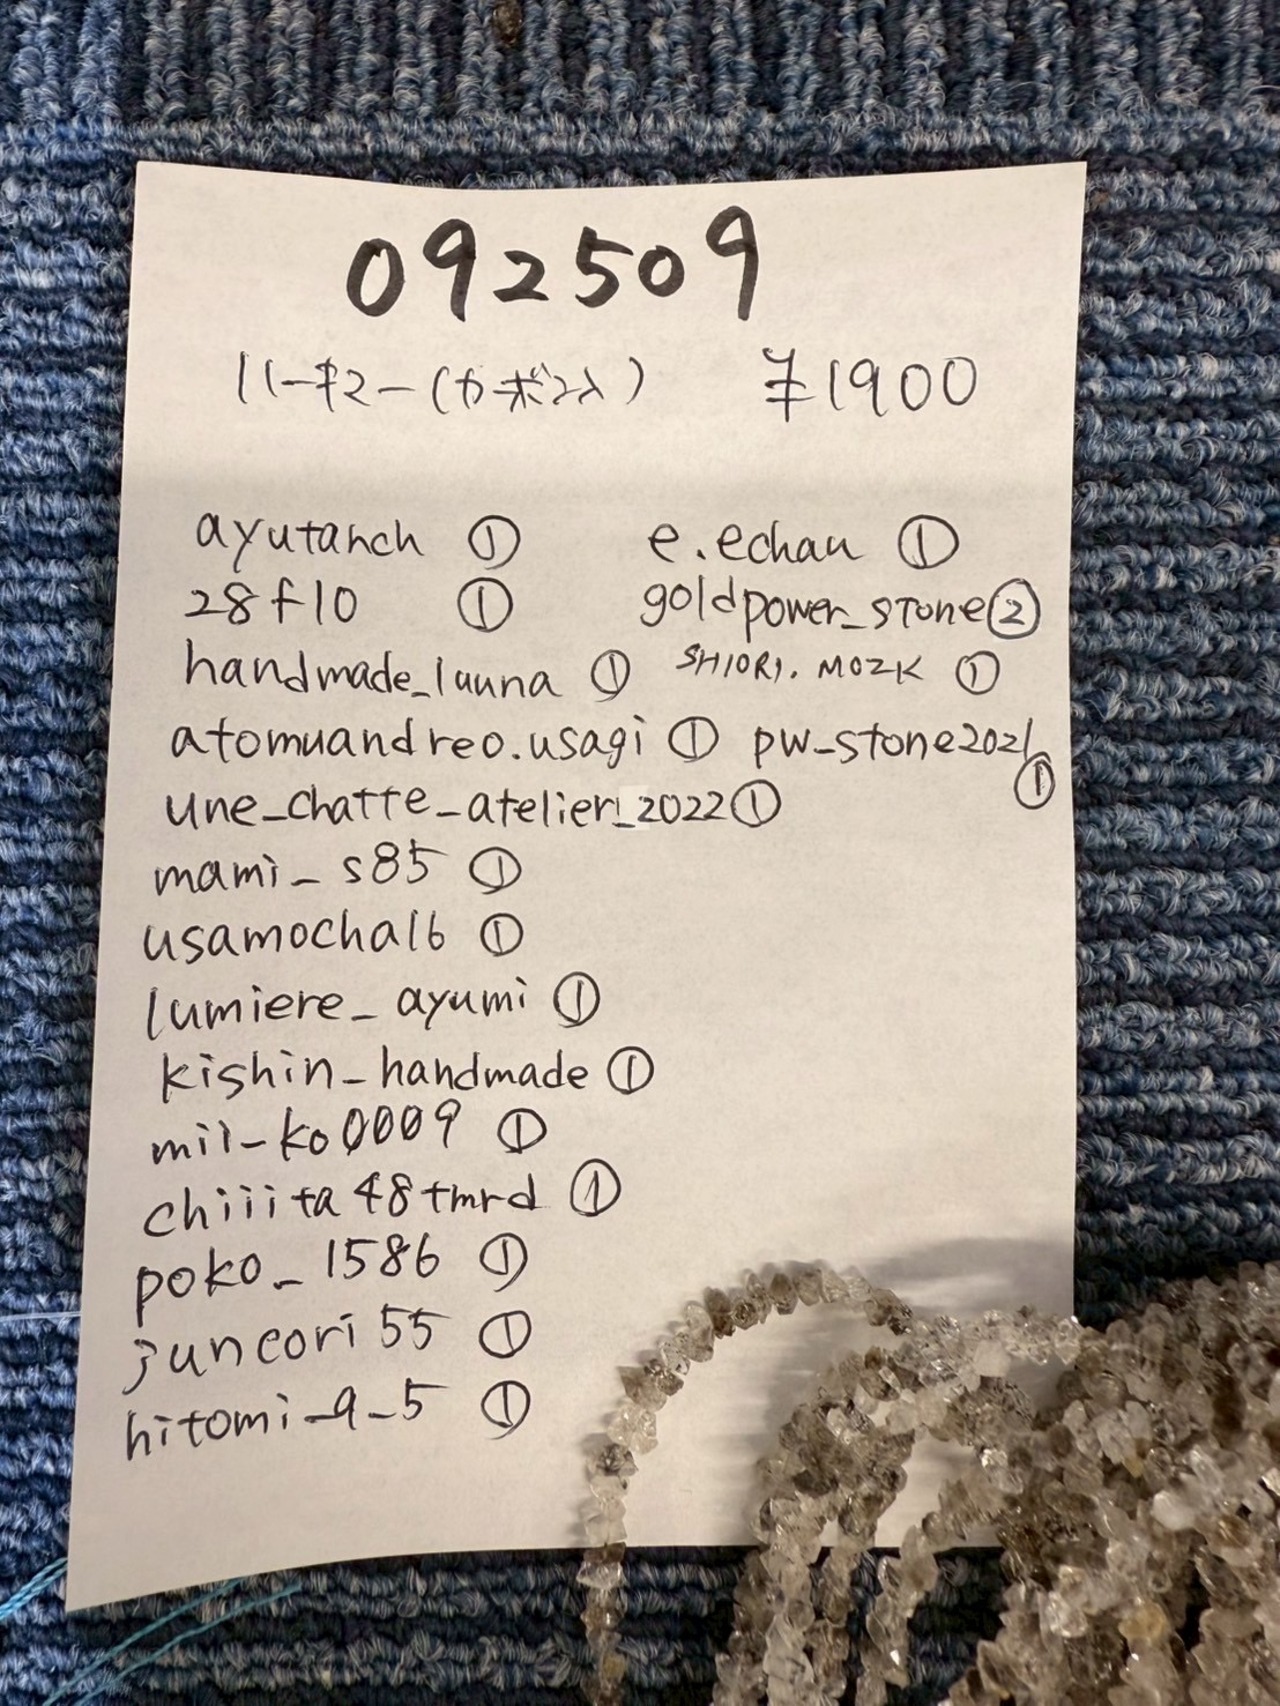 092509
ハーキマー(カボンヌ) ¥1900
ayutanch ① e.echan ①
28f10 ① goldpower_stone②
handmade_launa ① SHIORI.MOZK ①
atomuandreo.usagi ① pw_stone2021 ①
une_chatte_atelier_2022①
mami_s85 ①
usamocha16 ①
lumiere_ayumi ①
kishin_handmade ①
mii_ko0009 ①
chiiita48tmrd ①
poko_1586 ①
juncori55 ①
hitomi_9_5 ①